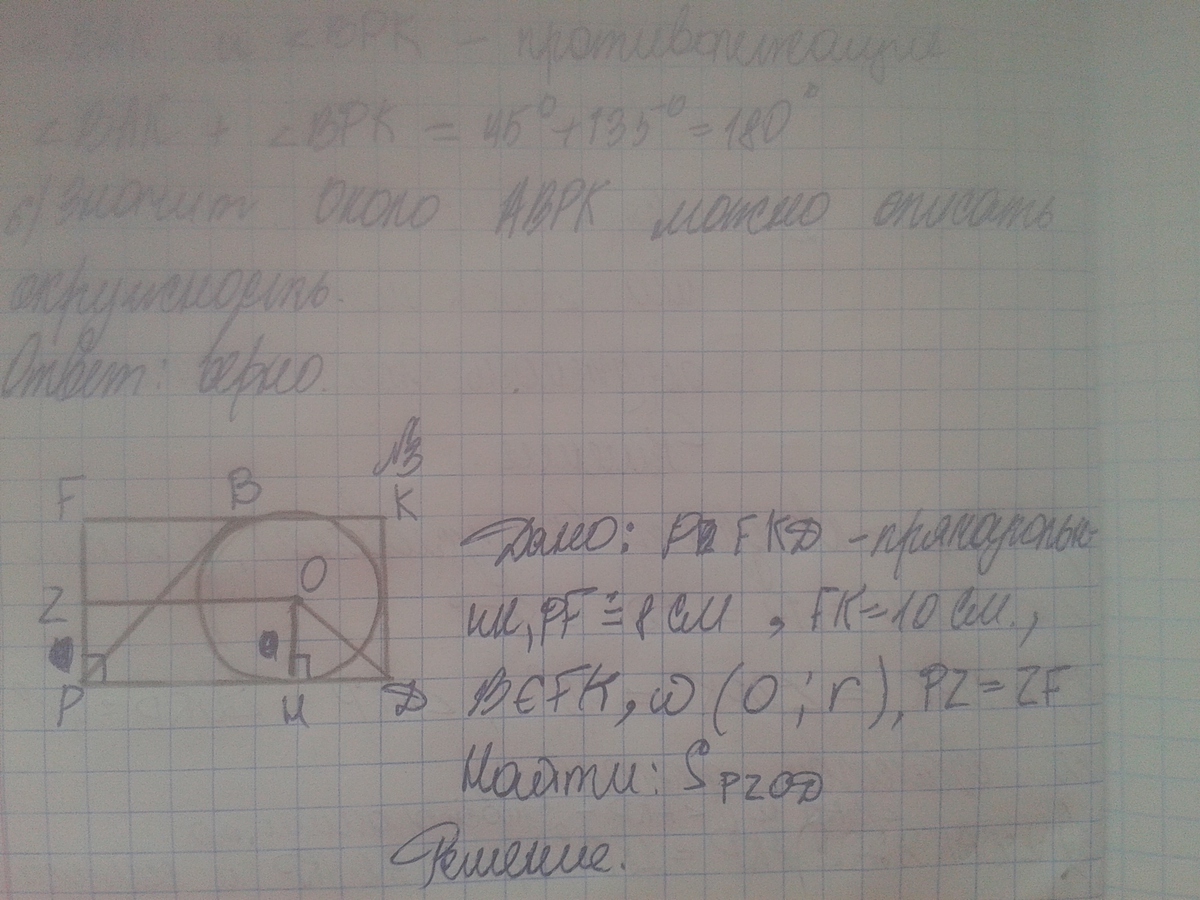 ∠ВАК и ∠ВРК – противолежащие
∠ВАК + ∠ВРК = 45° + 135° = 180°
б) Значит около АВРК можно описать
окружность.
Ответ: верно.
№3
F B K
O
Z
P H D
Дано: PFKD – прямоуголь-
ник, PF = 8 см, FK = 10 см.,
B ∈ FK, ω (O; r), PZ = ZF
Найти: S PZOD
Решение.